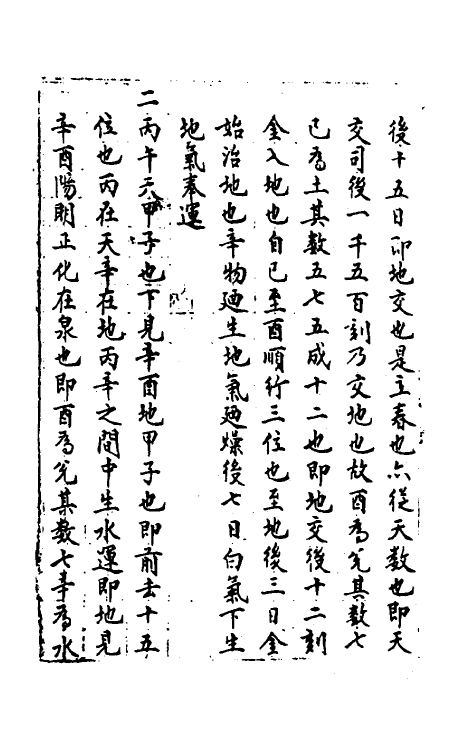 後十五日即地交也是立春也亦從天数也即天
交司後一千五百刻乃交地也故酉為兊其数七
已為土其数五七五成十二也即地交後十二刻
金入地也自巳至酉順行三位也至地後三日金
始治地也辛物廼生地氣廼燥後七日白氣下生
地氣奉運
二丙午天甲子也下見辛酉地甲子也即前去十五
位也丙在天辛在地丙辛之間中生水運即地見
辛酉陽明正化在泉也即酉為兊其数七辛為水